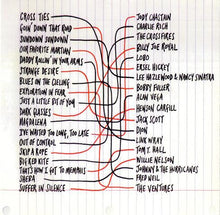 CROSS TIES
GOIN' DOWN THAT ROAD
SUNDOWN SUNDOWN
OUR FAVORITE MARTIAN
DADDY ROLLIN' IN YOUR ARMS
STRANGE DESIRE
BLUES ON THE CEILING
EXPLORATION IN FEAR
JUST A LITTLE BIT OF YOU
DARK GLASSES
MAGDALENA
I'VE WAITED TOO LONG, TOO LATE
OUT OF CONTROL
IS IT A RAPE
BIG RED KITE
THAT'S HOW I GOT TO MEMPHIS
SHEBA
SUFFER IN SILENCE
JODY CHASTAIN
CHARLIE RICH
THE CROSSFIRES
BILLY JOE ROYAL
LOBO
ERSEL HICKEY
LEE HAZLEWOOD & NANCY SINATRA
BOBBY FULLER
ALAN VEGA
HENSON CARGILL
JACK SCOTT
DION
LINK WRAY
TOM T. HALL
WILLIE NELSON
JOHNNY & THE HURRICANES
FRED NEIL
THE VENTURES